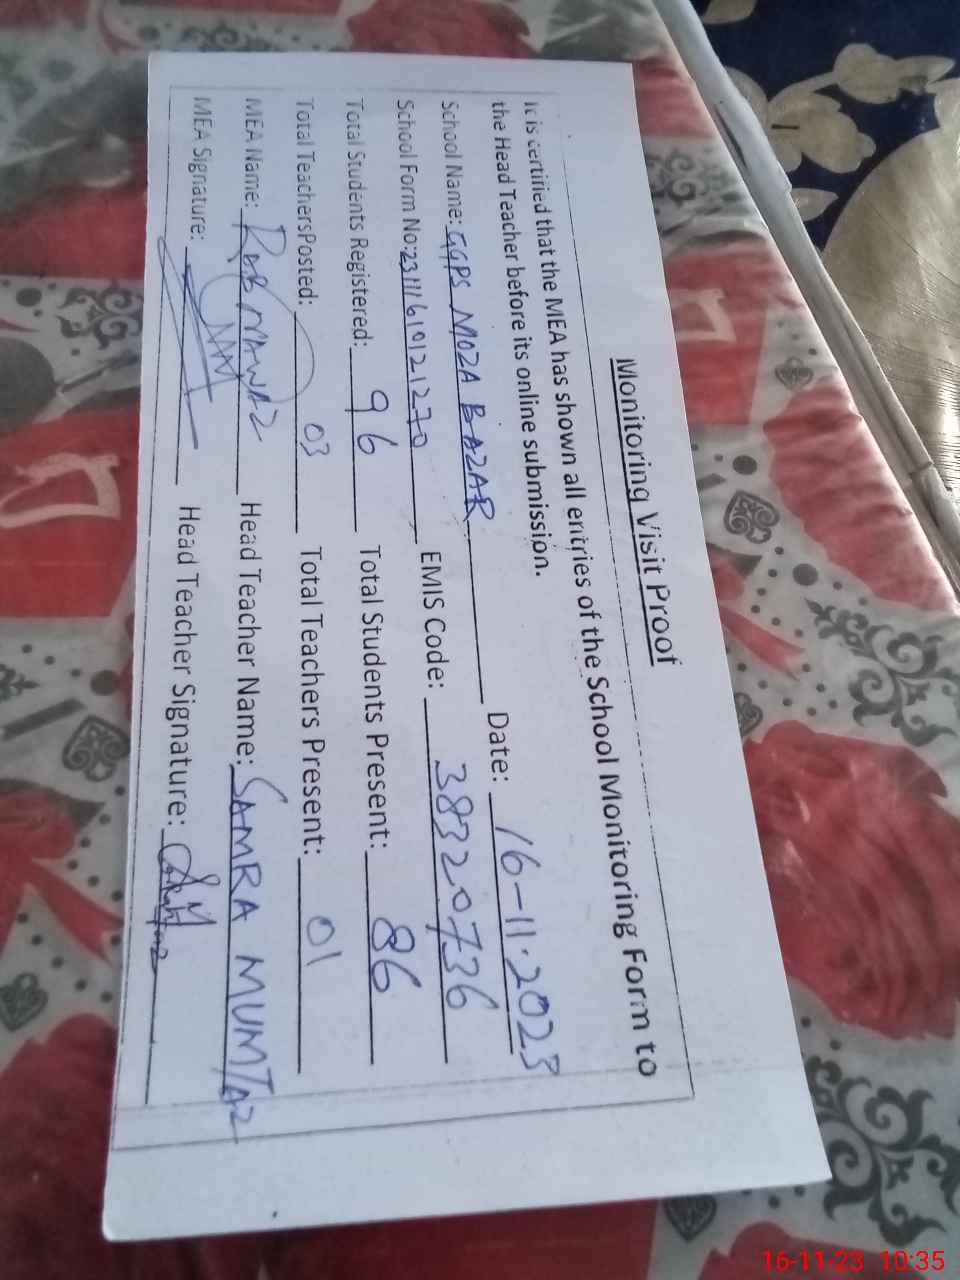 Monitoring Visit Proof
It is certified that the MEA has shown all entries of the School Monitoring Form to
the Head Teacher before its online submission.
School Name: GGPS MOZA BAZAR Date: 16-11-2023
School Form No: 23111610121270 EMIS Code: 38320736
Total Students Registered: 96 Total Students Present: 86
Total TeachersPosted: 03 Total Teachers Present: 01
MEA Name: RAB NAWAZ Head Teacher Name: SAMRA MUMTAZ
MEA Signature: Head Teacher Signature:
16-11-23 10:35